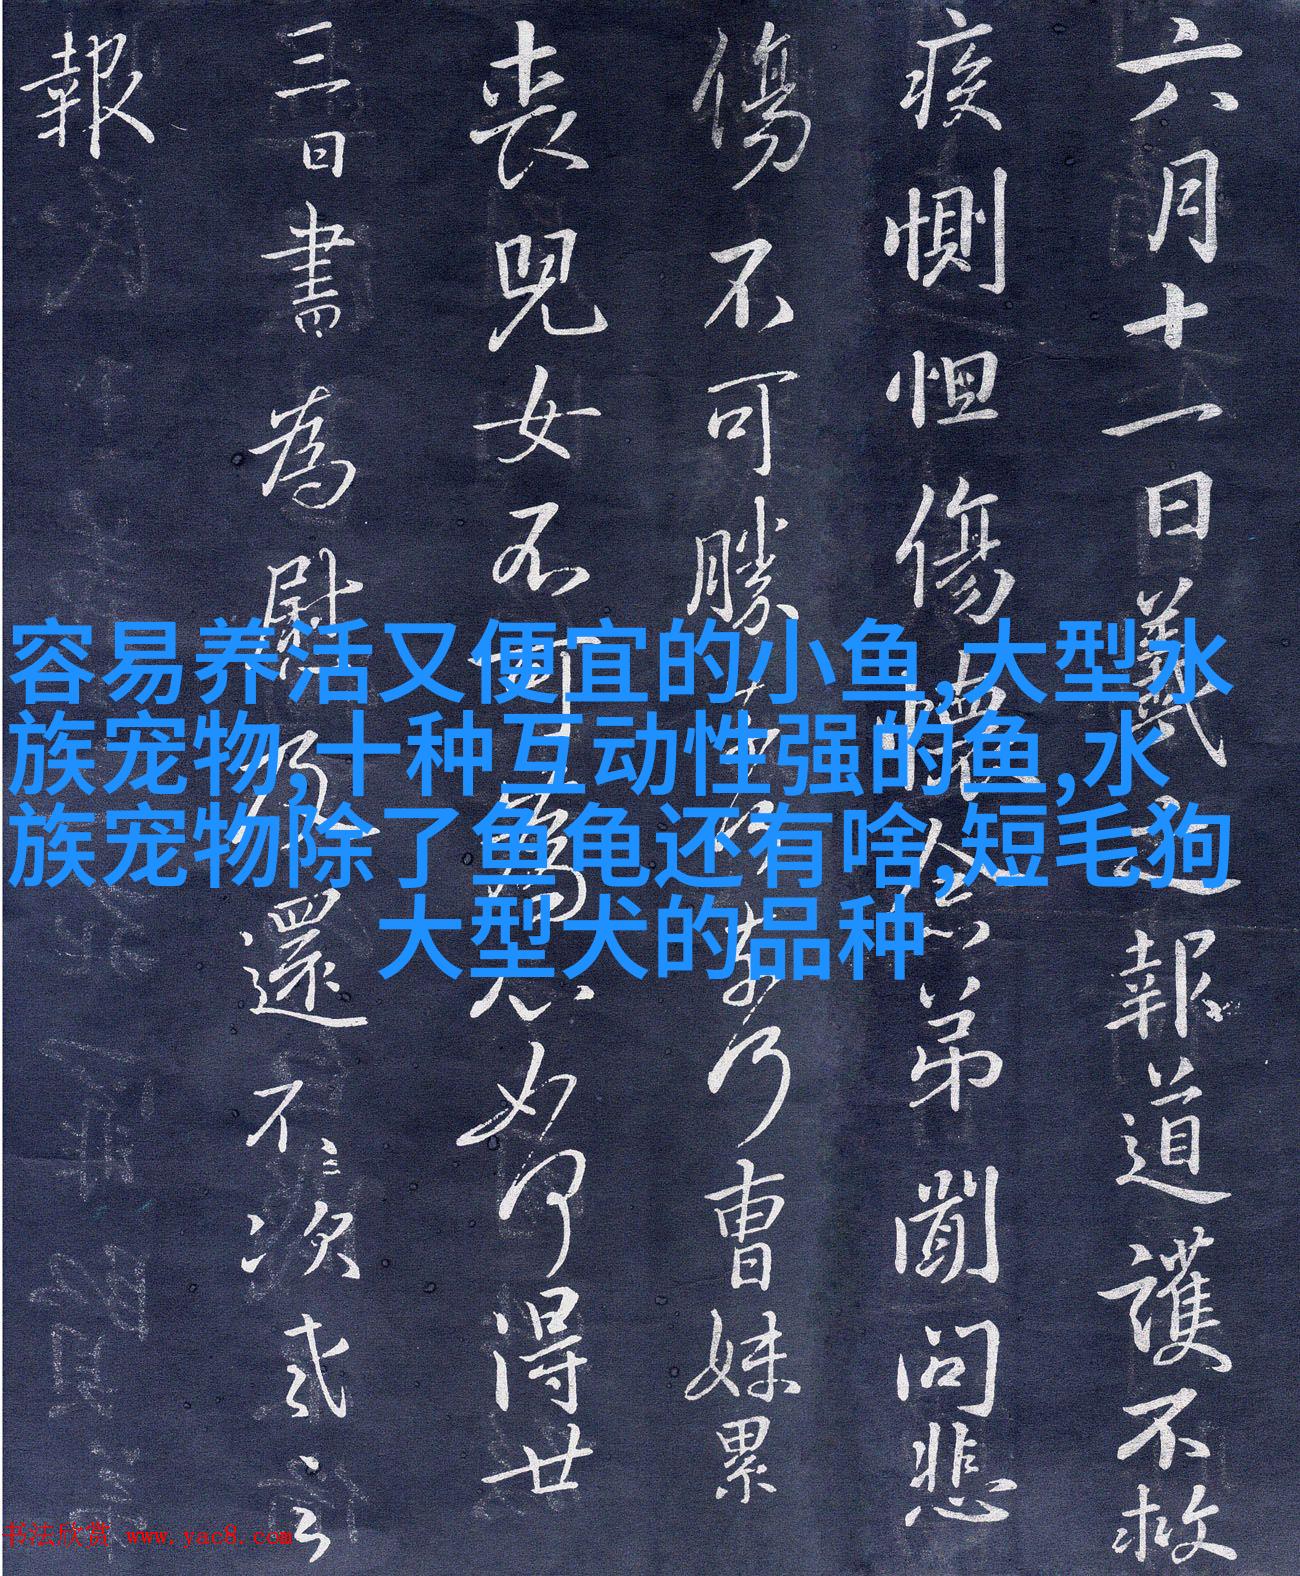 六月十一日羲之報道護不救
疾惻怛傷懷念弟聞問悲
傷不可勝奈何奈何乃書妹累
喪兒女不可為心如何得廿
三日書為慰及還不次羲之
報
容易养活又便宜的小鱼,大型水
族宠物,十种互动性强的鱼,水
族宠物除了鱼龟还有啥,短毛狗
大型犬的品种
书法欣赏 www.yac8.com